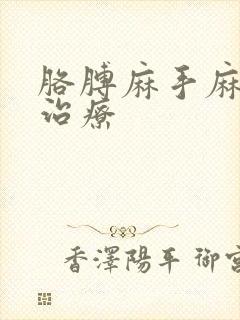 胳膊麻手麻
治療
香澤陽平 御宮